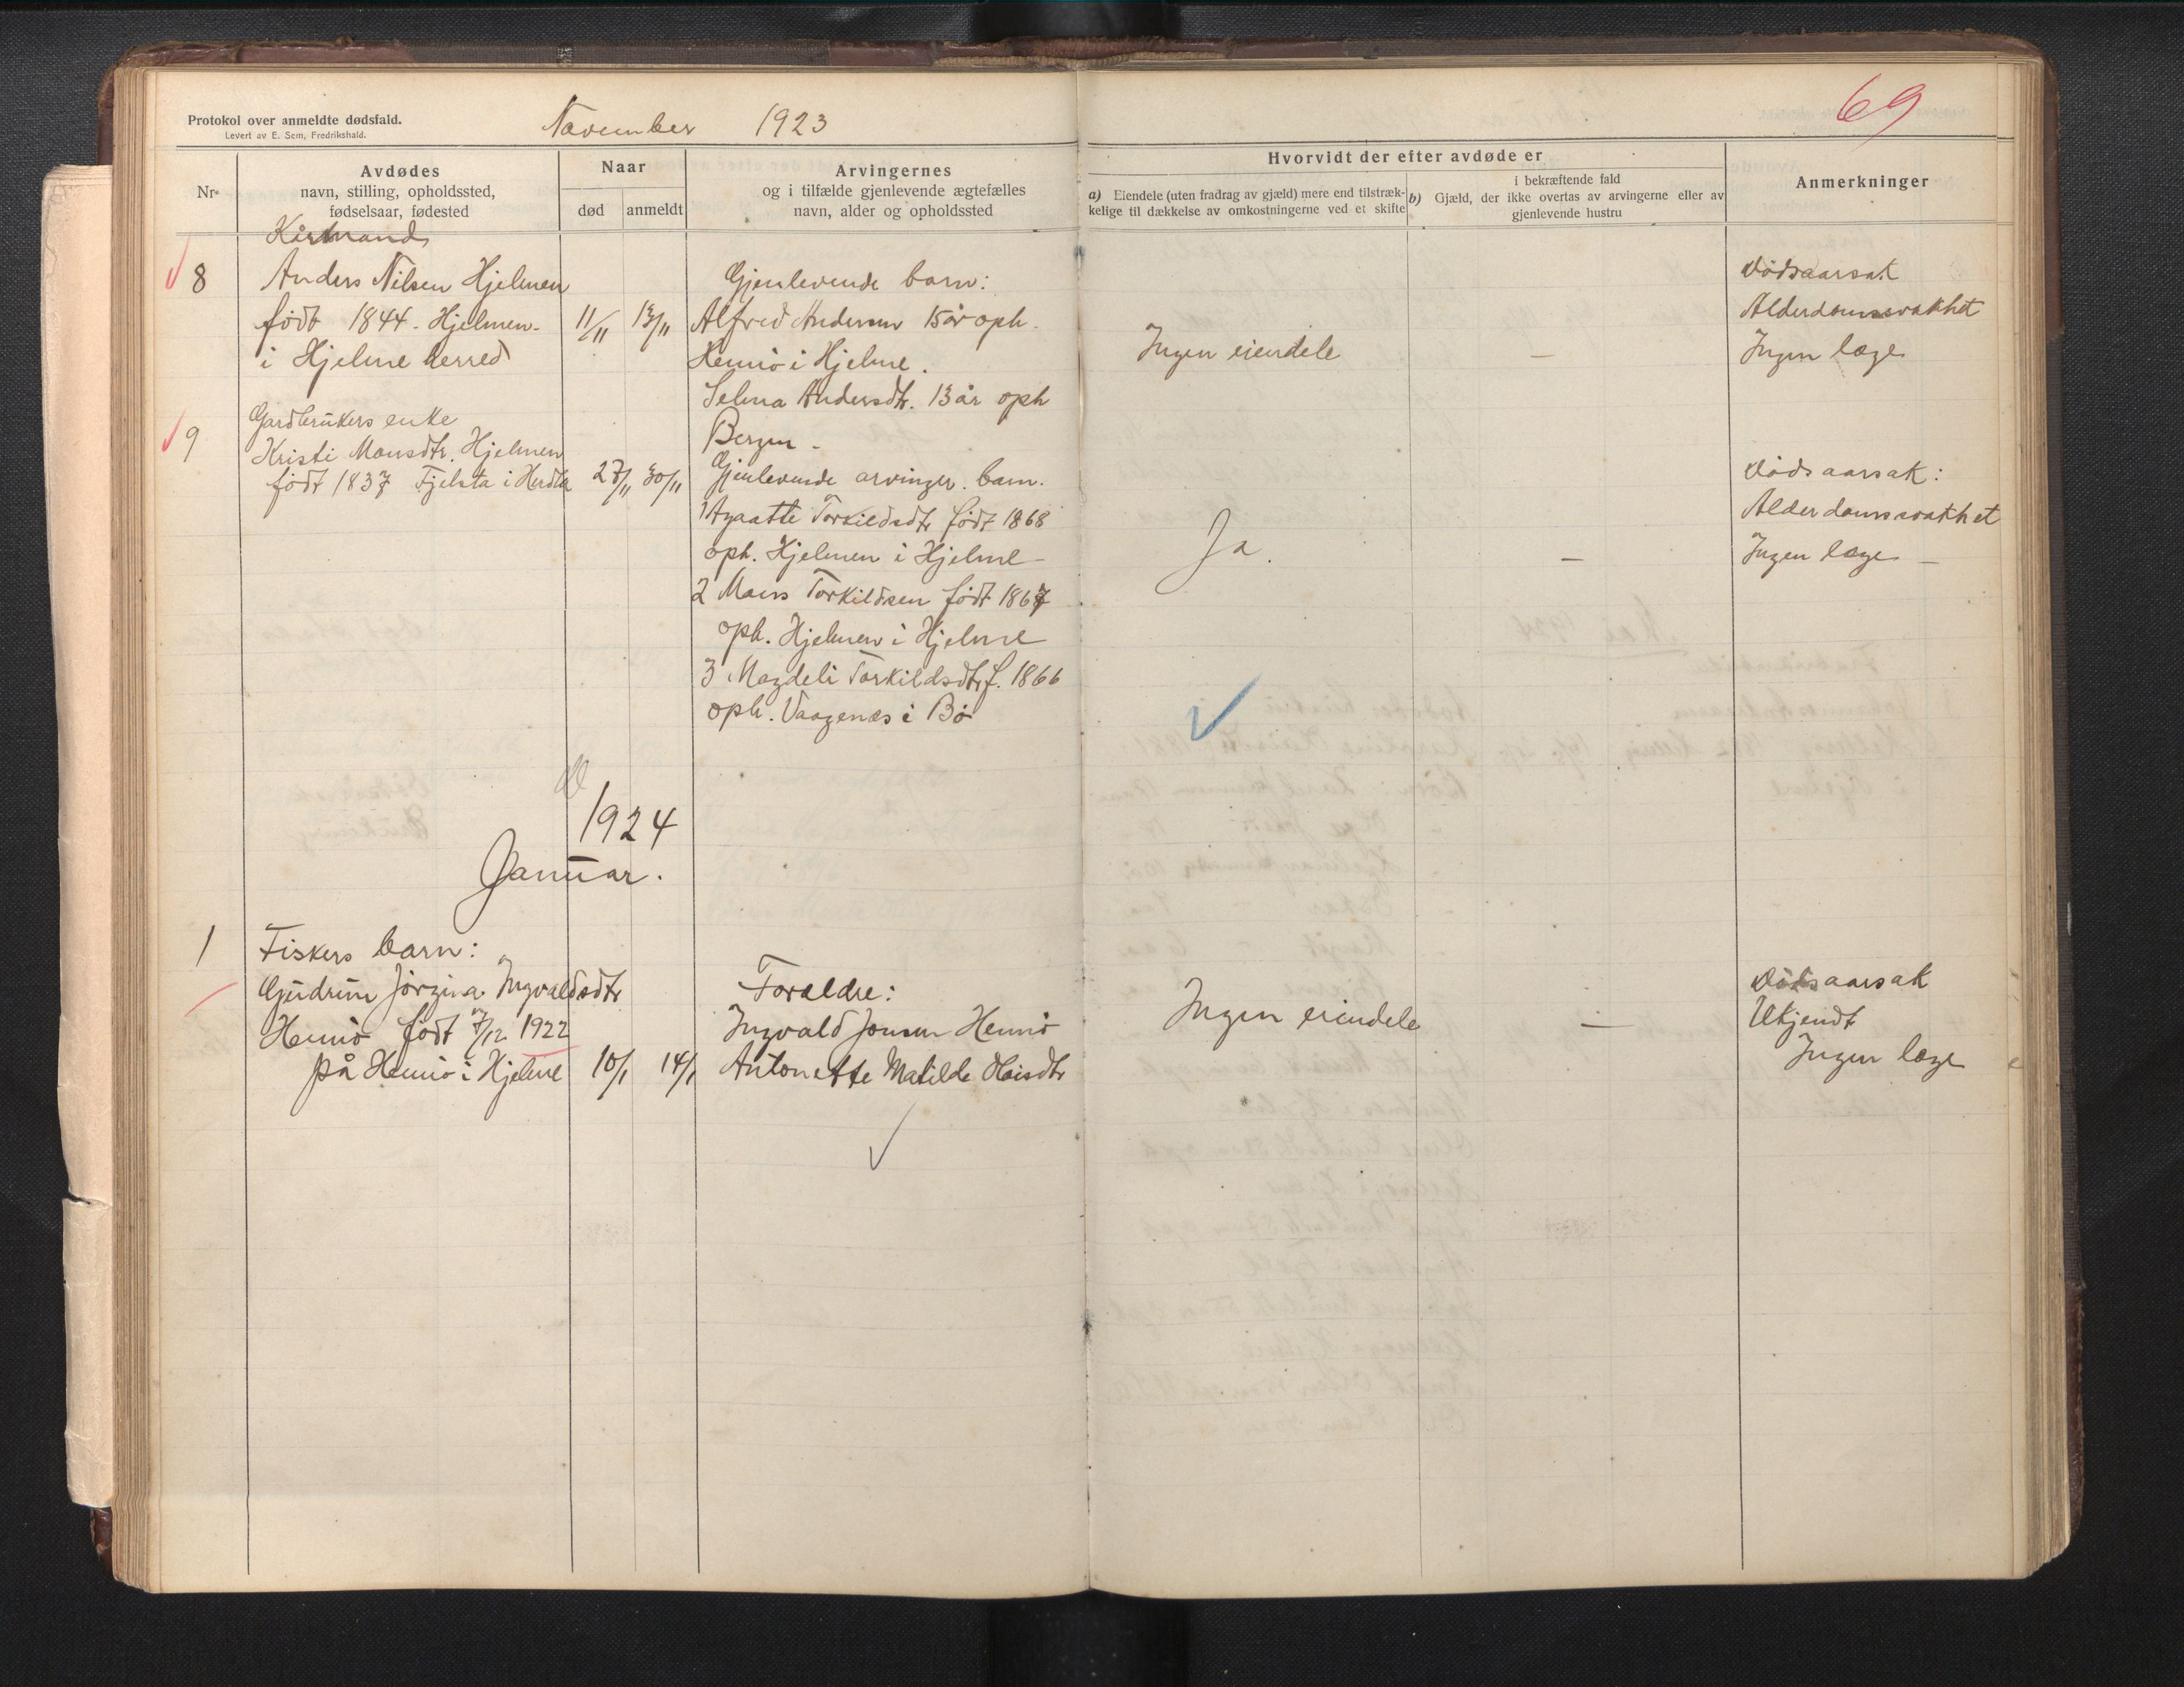 Protokol over anmeldte dødsfald.
Levert av E. Sem, Fredrikshald.
November 1923
69
Nr.
Avdødes
navn, stilling, opholdssted,
fødselsaar, fødested
Naar
død
anmeldt
Arvingernes
og i tilfælde gjenlevende ægtefælles
navn, alder og opholdssted
Hvorvidt der efter avdøde er
a) Eiendele (uten fradrag av gjæld) mere end tilstræk-
kelige til dækkelse av omkostningerne ved et skifte
b) i bekræftende fald
Gjæld, der ikke overtas av arvingerne eller av
gjenlevende hustru
Anmerkninger
Kårmand
8 Anders Nilsen Hjelmen
født 1844. Hjelmen
i Hjelme herred
11/11 13/11
Gjenlevende barn:
Alfred Andersen 15 år oph.
Hennø i Hjelme.
Selma Andersdtr. 13 år oph
Bergen -
Ingen eiendele
—
Dødsaarsak
Alderdomssvakhet
Ingen læge
9 Gardbrukers enke
Kristi Monsdtr. Hjelmen
født 1837 Fjelsta i Herdla
27/11 30/11
Gjenlevende arvinger. barn.
1 Agaatte Torkildsdtr født 1868
oph. Hjelmen i Hjelme -
2 Mons Torkildsen født 1867
oph. Hjelmen i Hjelme
3 Magdeli Torkildsdtr f. 1866
oph. Vaagenæs i Bø
Ja.
—
Dødsaarsak:
Alderdomssvakhet
Ingen læge -
1924
Januar.
1 Fiskers barn:
Gudrun Jørgina Ingvaldsdtr
Hennø født 7/12 1922
på Hennø i Hjelme
10/1 14/1
Forældre:
Ingvald Jonsen Hennø
Antonette Matilde Hansdtr
Ingen eiendele
—
Dødsaarsak
Ukjendt
Ingen læge